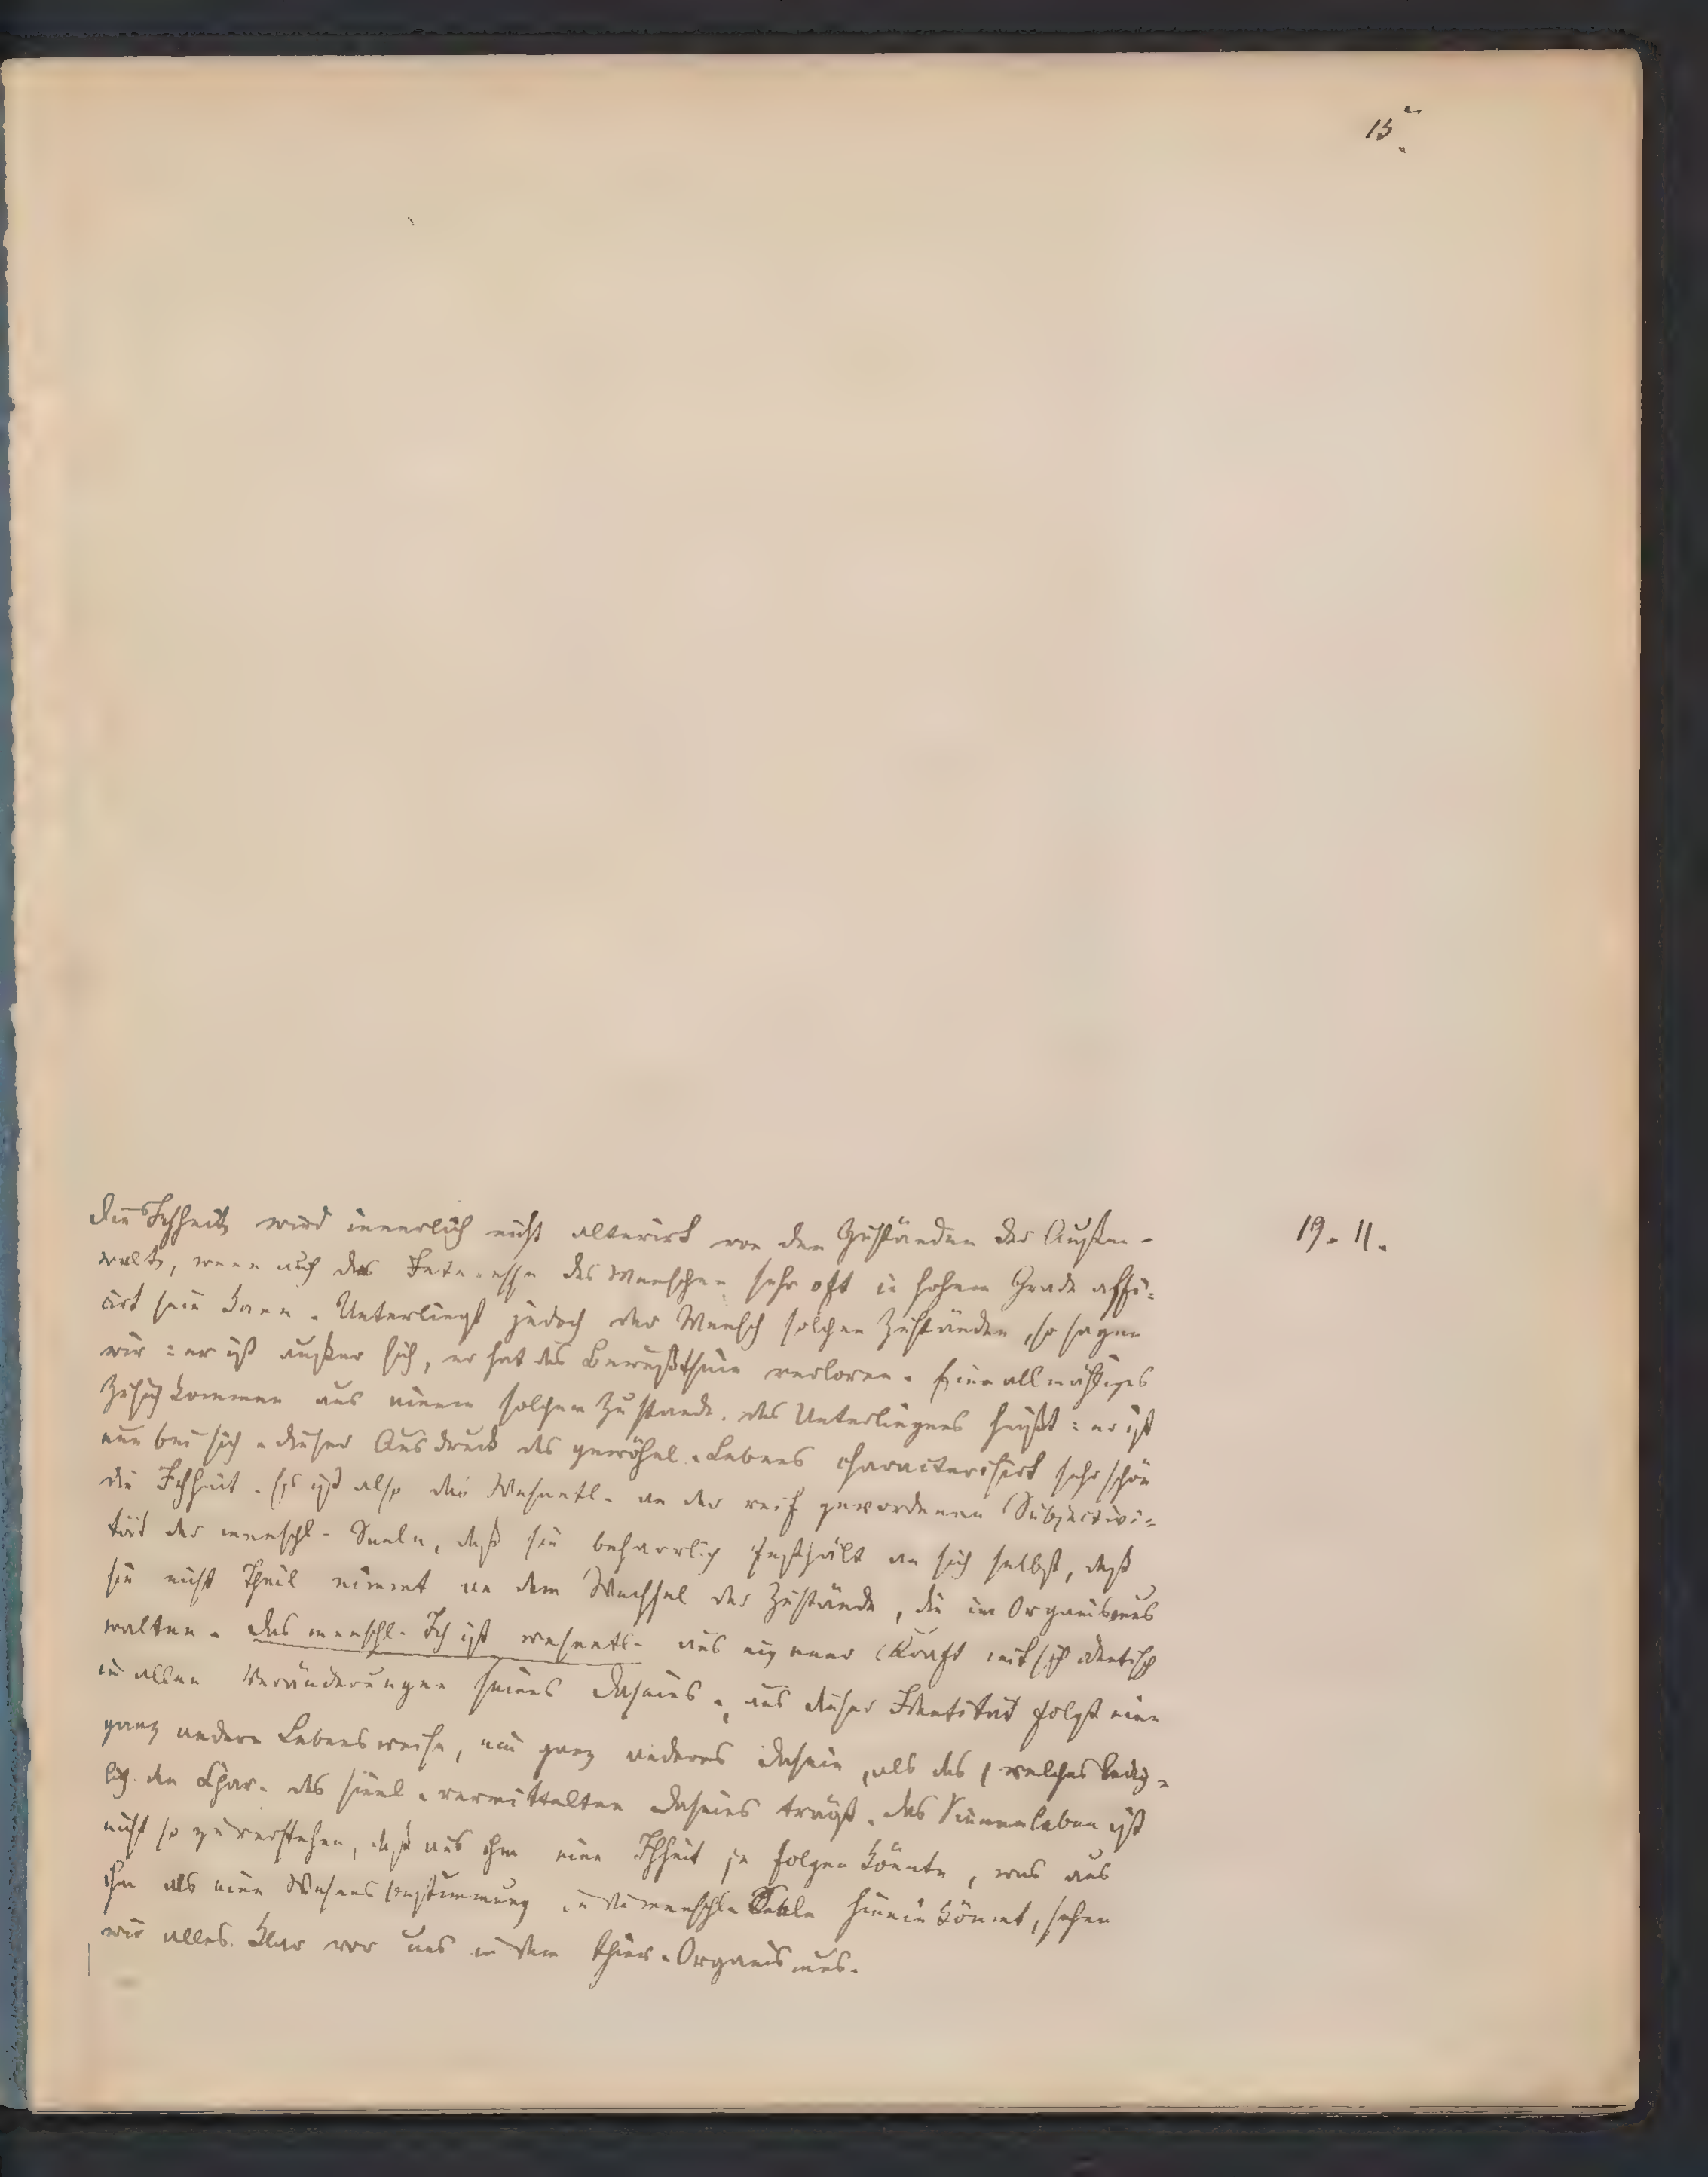 15
19. 11.
Die Ichheit wird innerlich nicht alterirt von den Zuständen der Außen-
welt, wenn auch das Interesse des Menschen sehr oft in hohem Grade affi-
cirt sein kann. Unterliegt jedoch der Mensch solchen Zuständen, so sagen
wir: er ist außer sich, er hat das Bewußtsein verloren. Ein allmähliges
Zusichkommen aus einem solchen Zustande des Unterliegens heißt: er ist
nun bei sich. dieser Ausdruck des gewöhnl. Lebens characterisirt sehr schön
die Ichheit. Es ist also das Wesentl. an der reif gewordenen Subjectivi-
tät der menschl. Seele, daß sie beharrlich festhält an sich selbst, daß
sie nicht Theil nimmt an dem Wechsel der Zustände, die im Organismus
walten. das menschl. Ich ist wesentl. aus eigener Kraft mit sich identisch
in allen Veränderungen seines Daseins. aus dieser Identität folgt eine
ganz andere Lebensweise, ein ganz anderes Dasein, als das, welches ledig-
lich den Char. des sinnl. vermittelten Daseins trägt. das Sinnenleben ist
nicht so zu verstehen, daß aus ihm eine Ichheit je folgen könnte, was aus
ihm als eine Wesensbestimmung in die menschl. Seele hinein kömmt, sehen
wir alles klar vor uns in dem thier. Organismus.